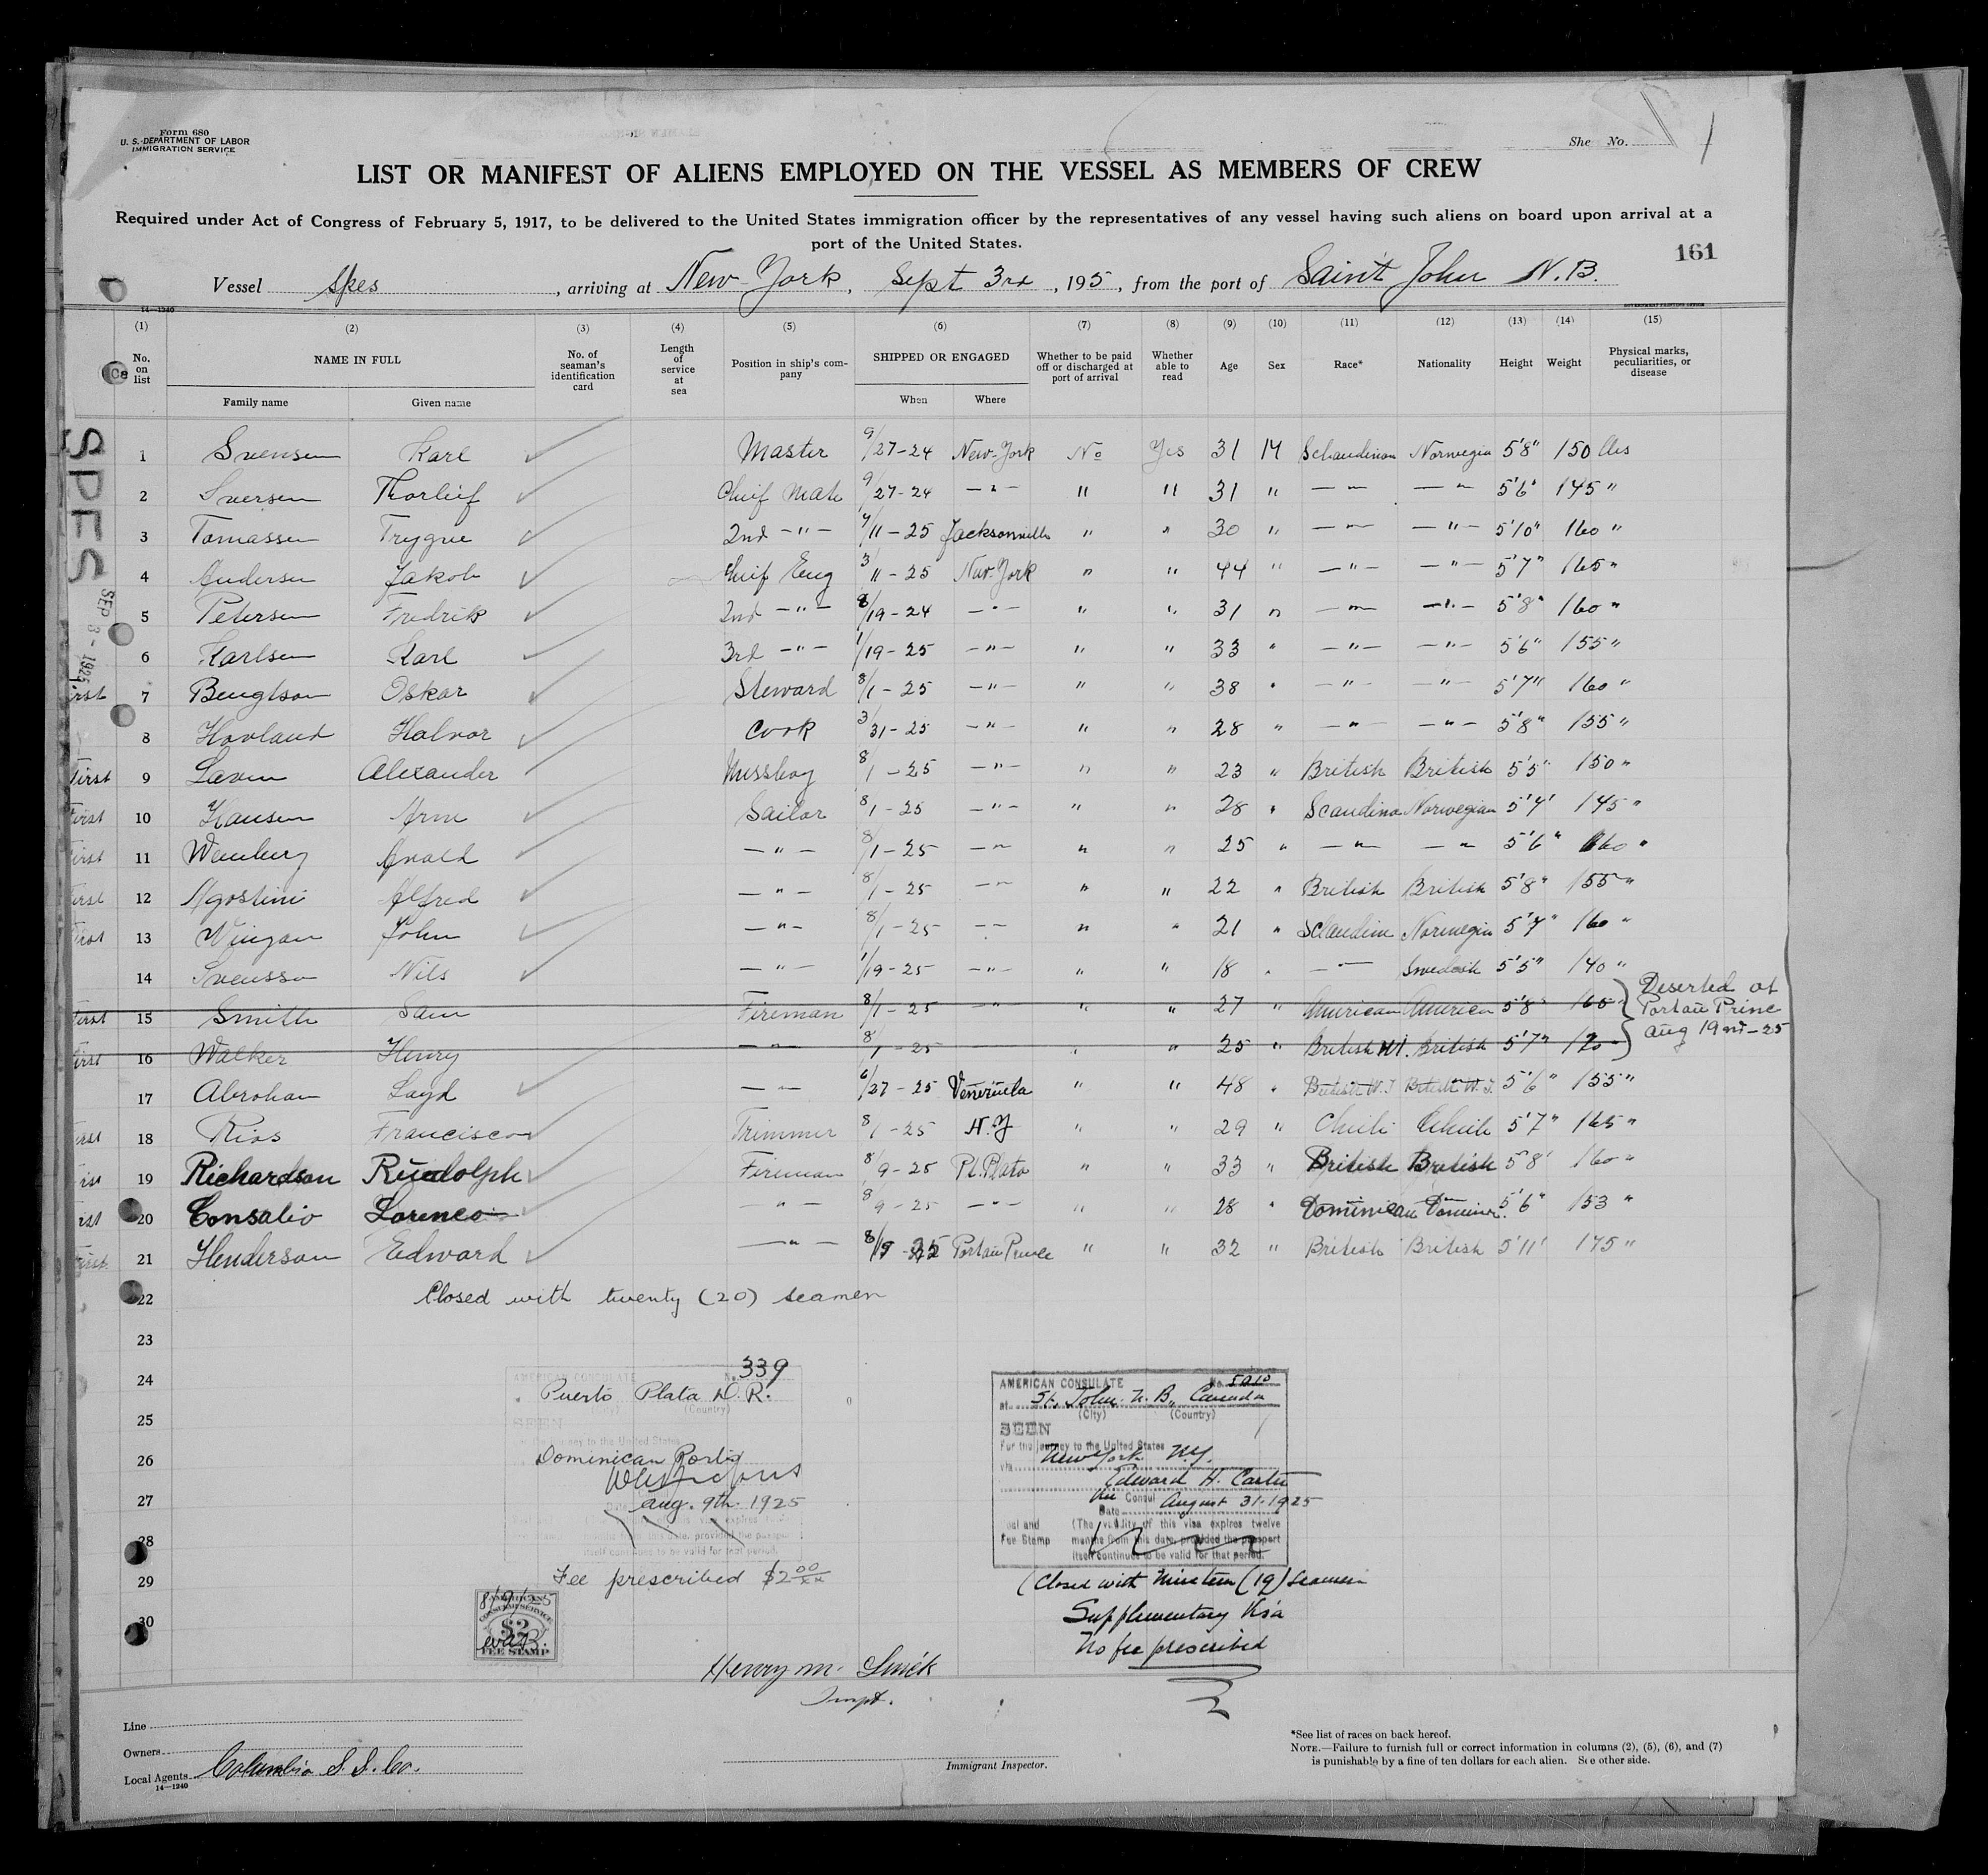 Form 680
U. S. DEPARTMENT OF LABOR
IMMIGRATION SERVICE
She No.
LIST OR MANIFEST OF ALIENS EMPLOYED ON THE VESSEL AS MEMBERS OF CREW
Required under Act of Congress of February 5, 1917, to be delivered to the United States immigration officer by the representatives of any vessel having such aliens on board upon arrival at a
port of the United States.
161
Vessel Spes, arriving at New York, Sept 3rd, 195, from the port of Saint John N.B.
14—1240
(1) (2) (3) (4) (5) (6) (7) (8) (9) (10) (11) (12) (13) (14) (15)
No. on list NAME IN FULL No. of seaman's identification card Length of service at sea Position in ship's company SHIPPED OR ENGAGED Whether to be paid off or discharged at port of arrival Whether able to read Age Sex Race* Nationality Height Weight Physical marks, peculiarities, or disease
Family name Given name When Where
SPES
SEP 3 - 1925
1 Svensen Karl Master 9/27-24 New-York No Yes 31 M Schandinav Norwegia 5'8" 150 lbs
2 Sversen Thorleif Chief Mate 9/27-24 — " — " " 31 " — " — — " — 5'6" 145 "
3 Tomassen Trygve 2nd — " — 4/11-25 Jacksonville " " 30 " — " — — " — 5'10" 160 "
4 Andersen Jakob Chief Eng 3/11-25 New-York " " 44 " — " — — " — 5'7" 165 "
5 Petersen Fredrik 2nd — " — 8/19-24 — " — " " 31 " — " — — " — 5'8" 160 "
6 Karlsen Karl 3rd — " — 1/19-25 — " — " " 33 " — " — — " — 5'6" 155 "
7 Bengtson Oskar Steward 8/1-25 — " — " " 38 " — " — — " — 5'7" 160 "
8 Hovland Halvor Cook 3/31-25 — " — " " 28 " — " — — " — 5'8" 155 "
First 9 Laven Alexander Messboy 8/1-25 — " — " " 23 " British British 5'5" 150 "
First 10 Hansen Arne Sailor 8/1-25 — " — " " 28 " Scandina Norwegian 5'7" 145 "
First 11 Wemberg — " — 8/1-25 — " — " " 25 " — " — — " 5'6" 160 "
First 12 Agostini Alfred — " — 8/1-25 — " — " " 22 " British British 5'8" 155 "
First 13 Wingan John — " — 8/1-25 — " — " " 21 " Schandine Norwegin 5'7" 160 "
14 Svensson Nils — " — 1/19-25 — " — " " 18 " — " — Swedish 5'5" 140 "
First 15 Smith Sam Fireman 8/1-25 — " — " " 27 " American American 5'8" 165 "
Deserted at
Port au Prince
Aug 19nd-25
First 16 Walker Henry — " — 8/1-25 — " " 25 " British W.I. British 5'7" 120
17 Abraham Loyd — " — 6/27-25 Venezuela " " 48 " British W.I British W.I. 5'6" 155 "
First 18 Rios Francisco Trimmer 8/1-25 N.Y " " 29 " Chile Chile 5'7" 165 "
First 19 Richardson Rudolph Fireman 8/9-25 Pt. Plata " " 33 " British British 5'8" 160 "
First 20 Consalio Lorenco — " — 8/9-25 — " — " " 28 " Dominican Dominin. 5'6" 153 "
First 21 Henderson Edward — " — 8/19-25 Port au Prince " " 32 " British British 5'11" 175 "
22 Closed with twenty (20) seamen
23
24
25
26
27
28
29
30
AMERICAN CONSULATE No. 339
Puerto Plata D. R.
(Country)
SEEN
For the journey to the United States
Dominican
Aug. 9th 1925
Fee prescribed $2.00
8/9/25
AMERICAN
CONSULAR SERVICE
$2
FEE STAMP
AMERICAN CONSULATE No. 5210
at St. John. N. B., Canada
(City) (Country)
SEEN
For the journey to the United States
via New York N.Y.
Edward H. Carter
Vice Consul
Date August 31-1925
Seal and Fee Stamp
(The validity of this visa expires twelve
months from this date, provided the passport
itself continues to be valid for that period.
(Closed with Nineteen (19) seamen
Supplementary Visa
No fee prescribed
Henry M. Smith
Inspt.
Line
Owners
Local Agents Columbia S. S. Co.
14—1240
Immigrant Inspector.
*See list of races on back hereof.
NOTE.—Failure to furnish full or correct information in columns (2), (5), (6), and (7)
is punishable by a fine of ten dollars for each alien. See other side.